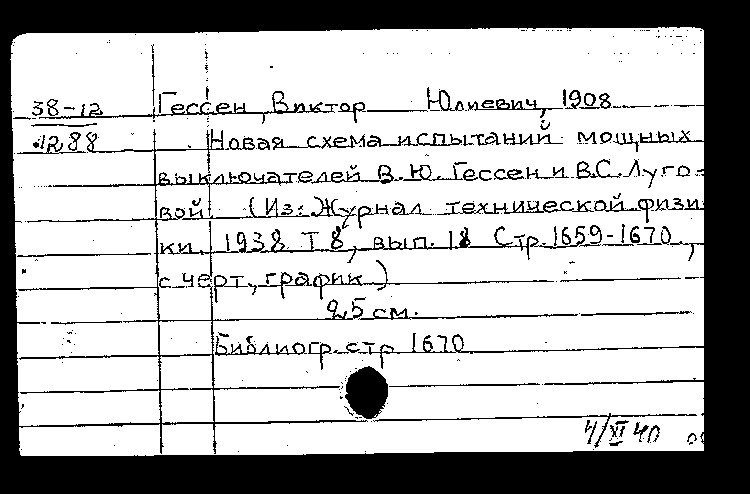 38-12 Гессен, Виктор Юлиевич, 1908
1288 Новая схема испытаний мощных
выключателей В.Ю. Гессен и В.С. Луго-
вой. (Из: Журнал технической физи
ки. 1938 Т 8, вып. 18 Стр. 1659-1670,
с черт., график)
25 см.
Библиогр. стр 1670
4/XI 40